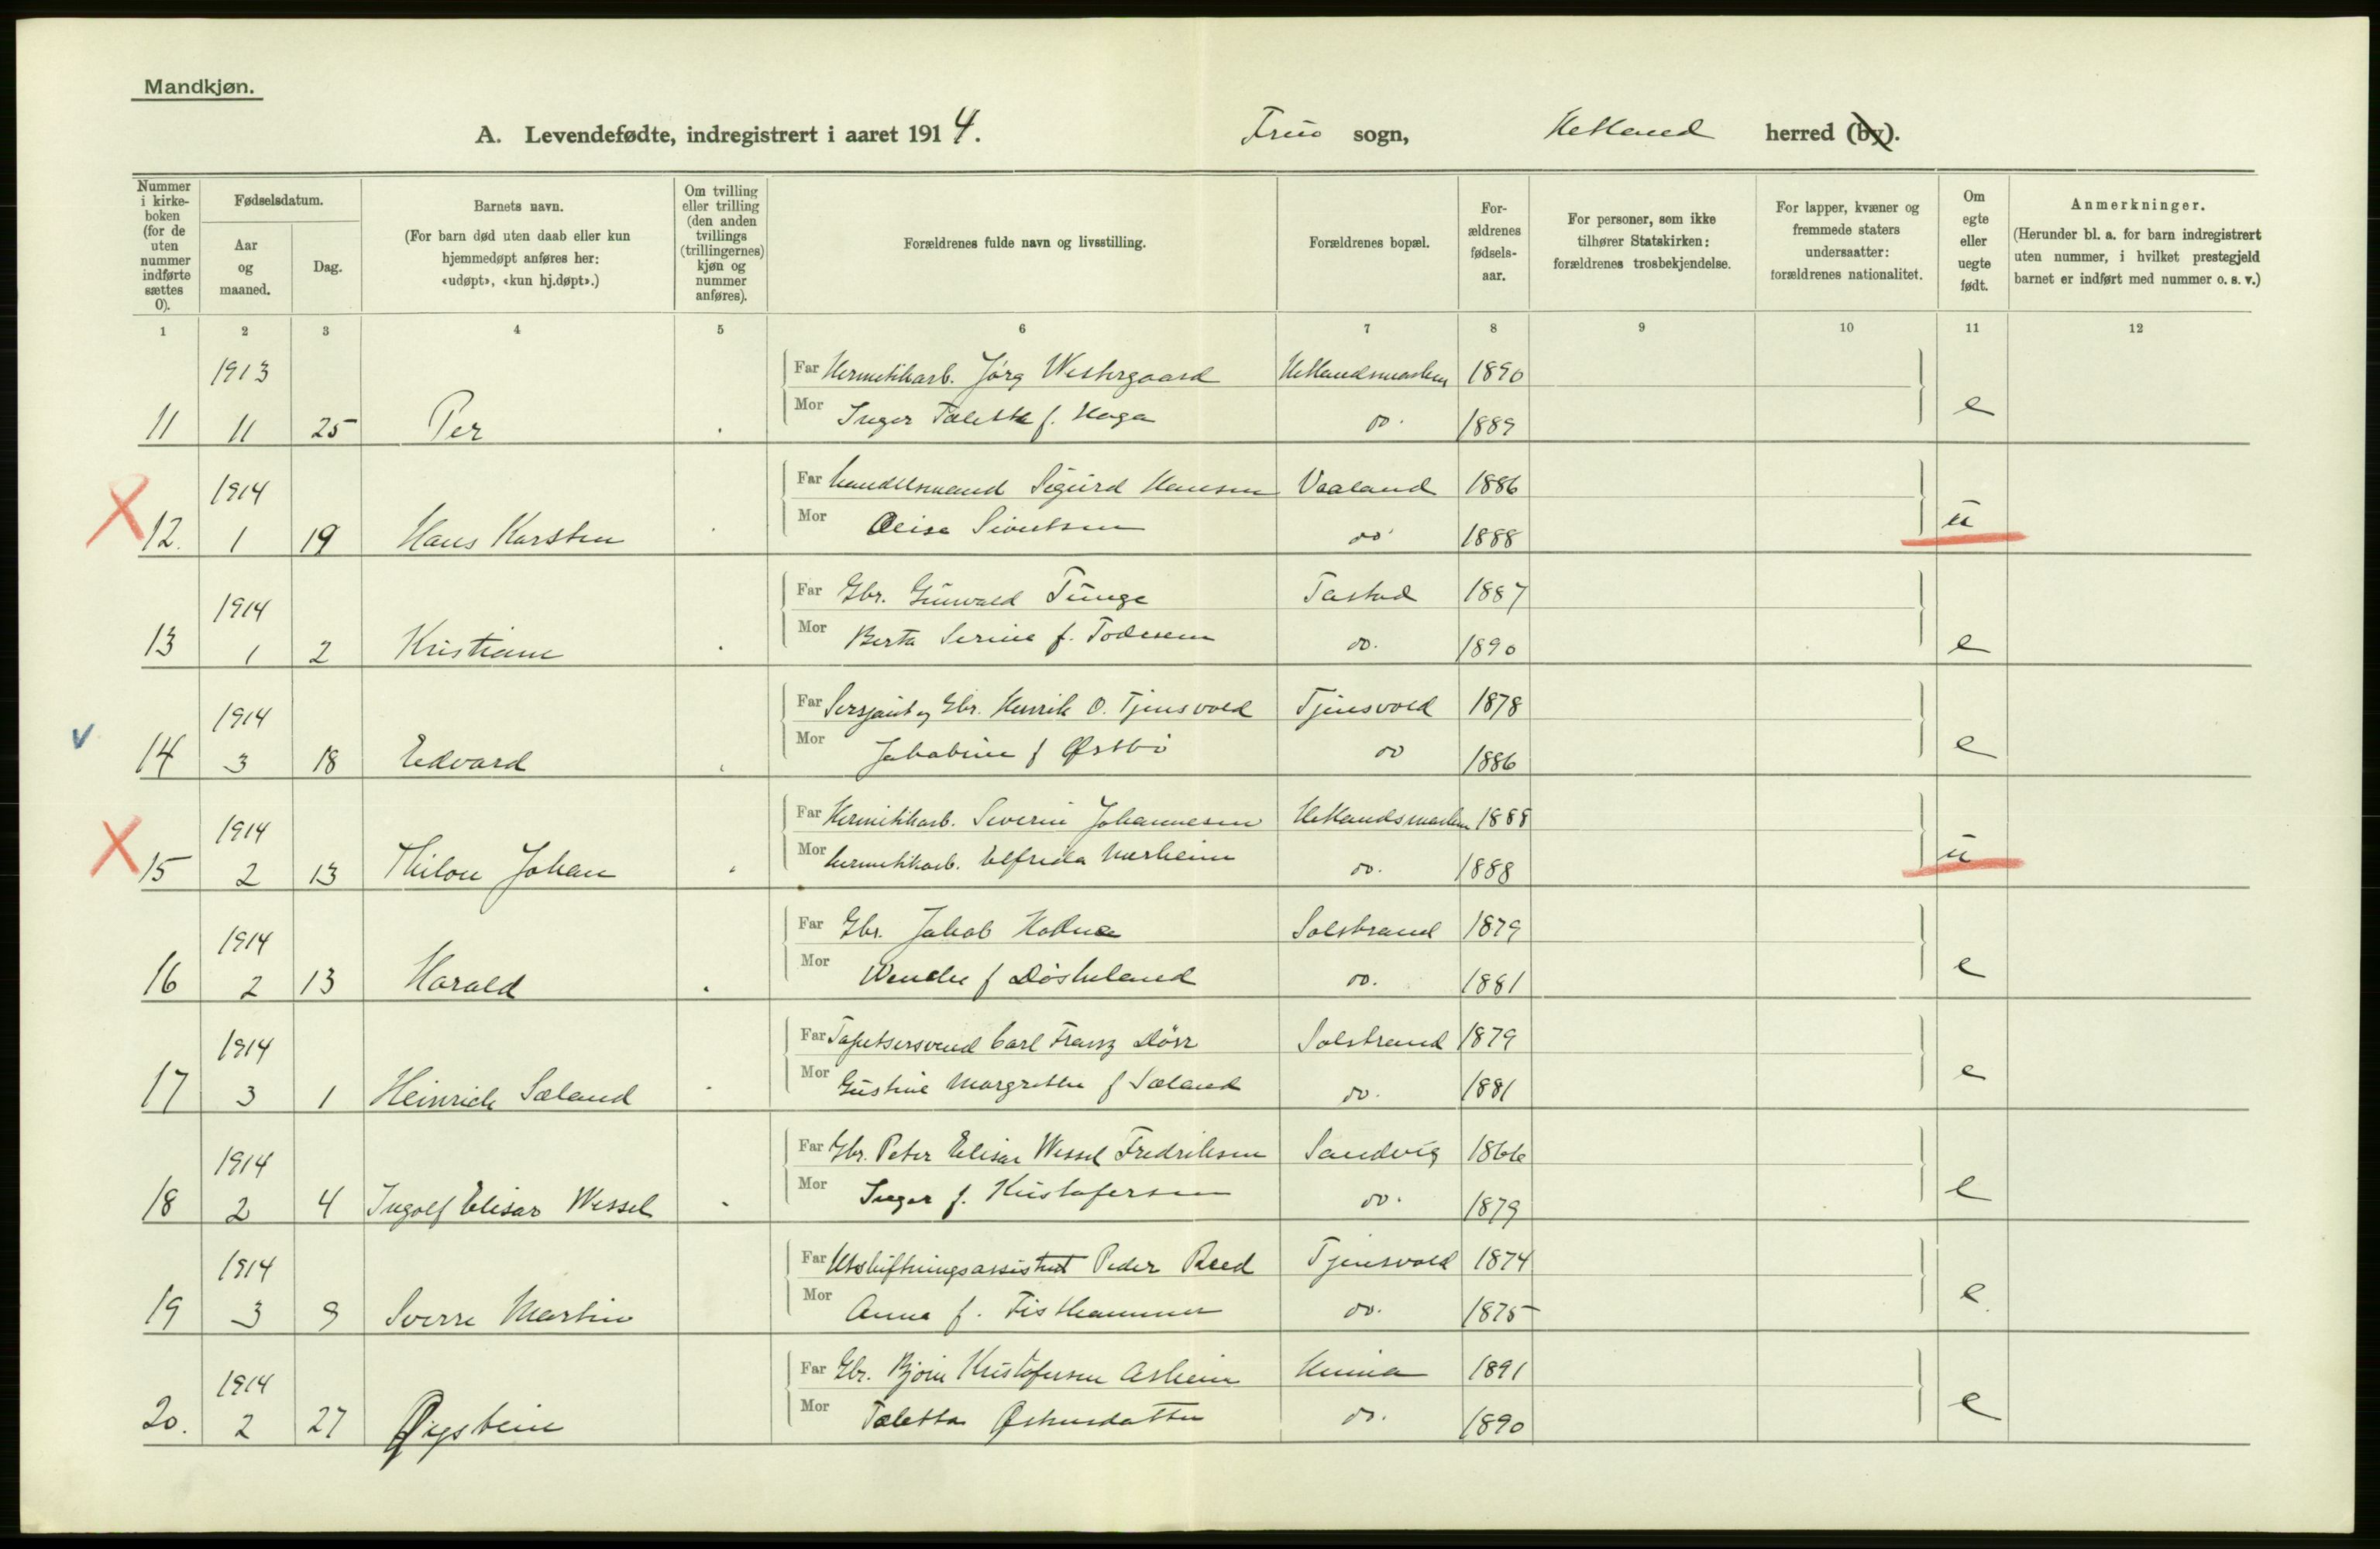 Mandkjøn.
A. Levendefødte, indregistrert i aaret 1914. Frue sogn, Hetland herred (by).
Nummer i kirke-boken (for de uten nummer indførte sættes 0).
Fødselsdatum.
Aar og maaned.
Dag.
Barnets navn.
(For barn død uten daab eller kun hjemmedøpt anføres her: «udøpt», «kun hj.døpt».)
Om tvilling eller trilling (den anden tvillings (trillingernes) kjøn og nummer anføres).
Forældrenes fulde navn og livsstilling.
Forældrenes bopæl.
For-ældrenes fødsels-aar.
For personer, som ikke tilhører Statskirken: forældrenes trosbekjendelse.
For lapper, kvæner og fremmede staters undersaatter: forældrenes nationalitet.
Om egte eller uegte født.
Anmerkninger.
(Herunder bl. a. for barn indregistrert uten nummer, i hvilket prestegjeld barnet er indført med nummer o. s. v.)
1 2 3 4 5 6 7 8 9 10 11 12
1913 Far Hermetikarb. Jørg Westergaard Hetlandsmarken 1890
11 11 25 Per Mor Inger Talette f. Haga do. 1889 e
1914 Far handelsmand Sigurd Hansen Vaaland 1886
12. 1 19 Hans Karsten Mor Sivertsen do 1888 u
1914 Far Gbr. Gunvald Tunge Tasted 1887
13 1 2 Kristian Mor Berta Serine f. do. 1890 e
1914 Far Sersjant og Gbr. Henrik O. Tjensvold Tjensvold 1878
14 3 18 Edvard Mor Jakobine f Østbø do 1886 e
1914 Far Hermetikarb. Severin Johannesen Hetlandsmarken 1888
15 2 13 Thilou Johan Mor hermetikarb. Elfrida do. 1888 u
1914 Far Gbr. Jakob Solstrand 1879
16 2 13 Harald Mor Wenche f Døskeland do. 1881 e
1914 Far Tapetsersvend Carl Franz Dörr Solstrand 1879
17 3 1 Heinrich Sæland Mor Gustine Margrethe f Sæland do. 1881 e
1914 Far Gbr. Peter Elisar Wessel Fredriksen Sandvig 1866
18 2 4 Ingolf Elisar Wessel Mor Inger f. Kristofersen do. 1879 e
1914 Far Utskiftningsassistent Peder Reed Tjensvold 1874
19 3 9 Sverre Martin Mor Anna f. do. 1875 e
1914 Far Gbr. Bjørn Kristofersen Asheim Hinna 1891
20. 2 27 Øigstein Mor Taletta do. 1890 e